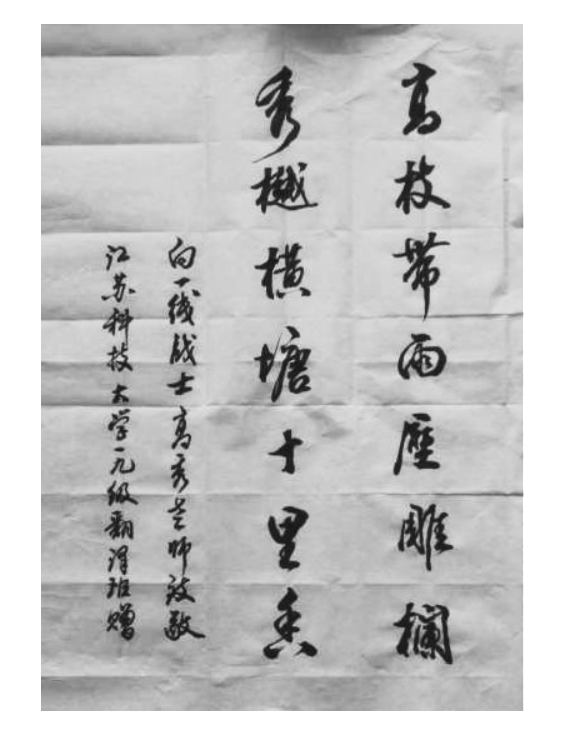 高枝带雨压雕欄
秀樾横塘十里香
向一线战士高秀老师致敬
江苏科技大学一九级翻译班赠